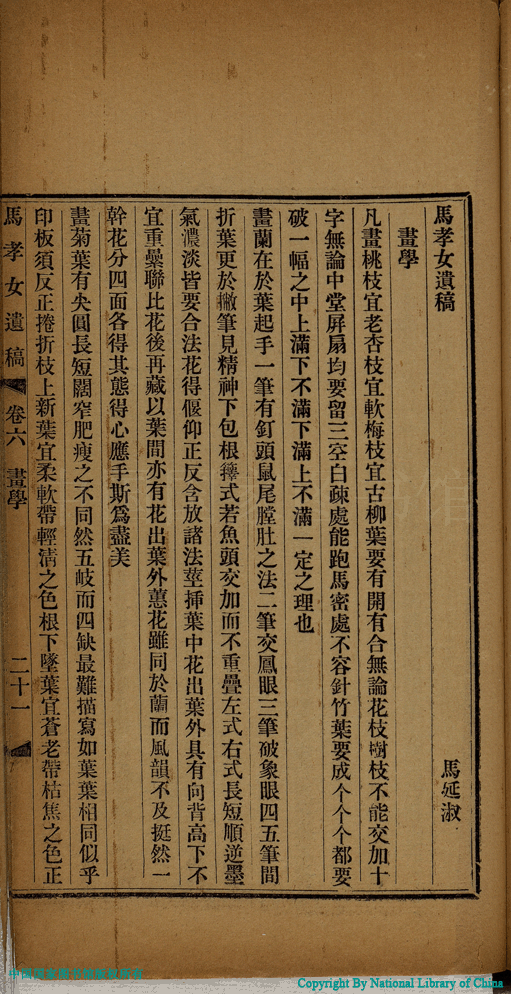 馬孝女遺稿
馬延淑
畫學
凡畫桃枝宜老杏枝宜軟梅枝宜古柳葉要有開有合無論花枝樹枝不能交加十
字無論中堂屏扇均要留三空白疎處能跑馬密處不容針竹葉要成个个个都要
破一幅之中上滿下不滿下滿上不滿一定之理也
畫蘭在於葉起手一筆有釘頭鼠尾膛肚之法二筆交鳳眼三筆破象眼四五筆間
折葉更於撇筆見精神下包根籜式若魚頭交加而不重疊左式右式長短順逆墨
氣濃淡皆要合法花得偃仰正反含放諸法莖挿葉中花出葉外具有向背高下不
宜重纍聯比花後再藏以葉間亦有花出葉外蕙花雖同於蘭而風韻不及挺然一
幹花分四面各得其態得心應手斯爲盡美
畫菊葉有尖圓長短闊窄肥瘦之不同然五岐而四缺最難描寫如葉葉相同似乎
印板須反正捲折枝上新葉宜柔軟帶輕清之色根下墜葉宜蒼老帶枯焦之色正
馬孝女遺稿 卷六 畫學 二十一
Copyright By National Library of China